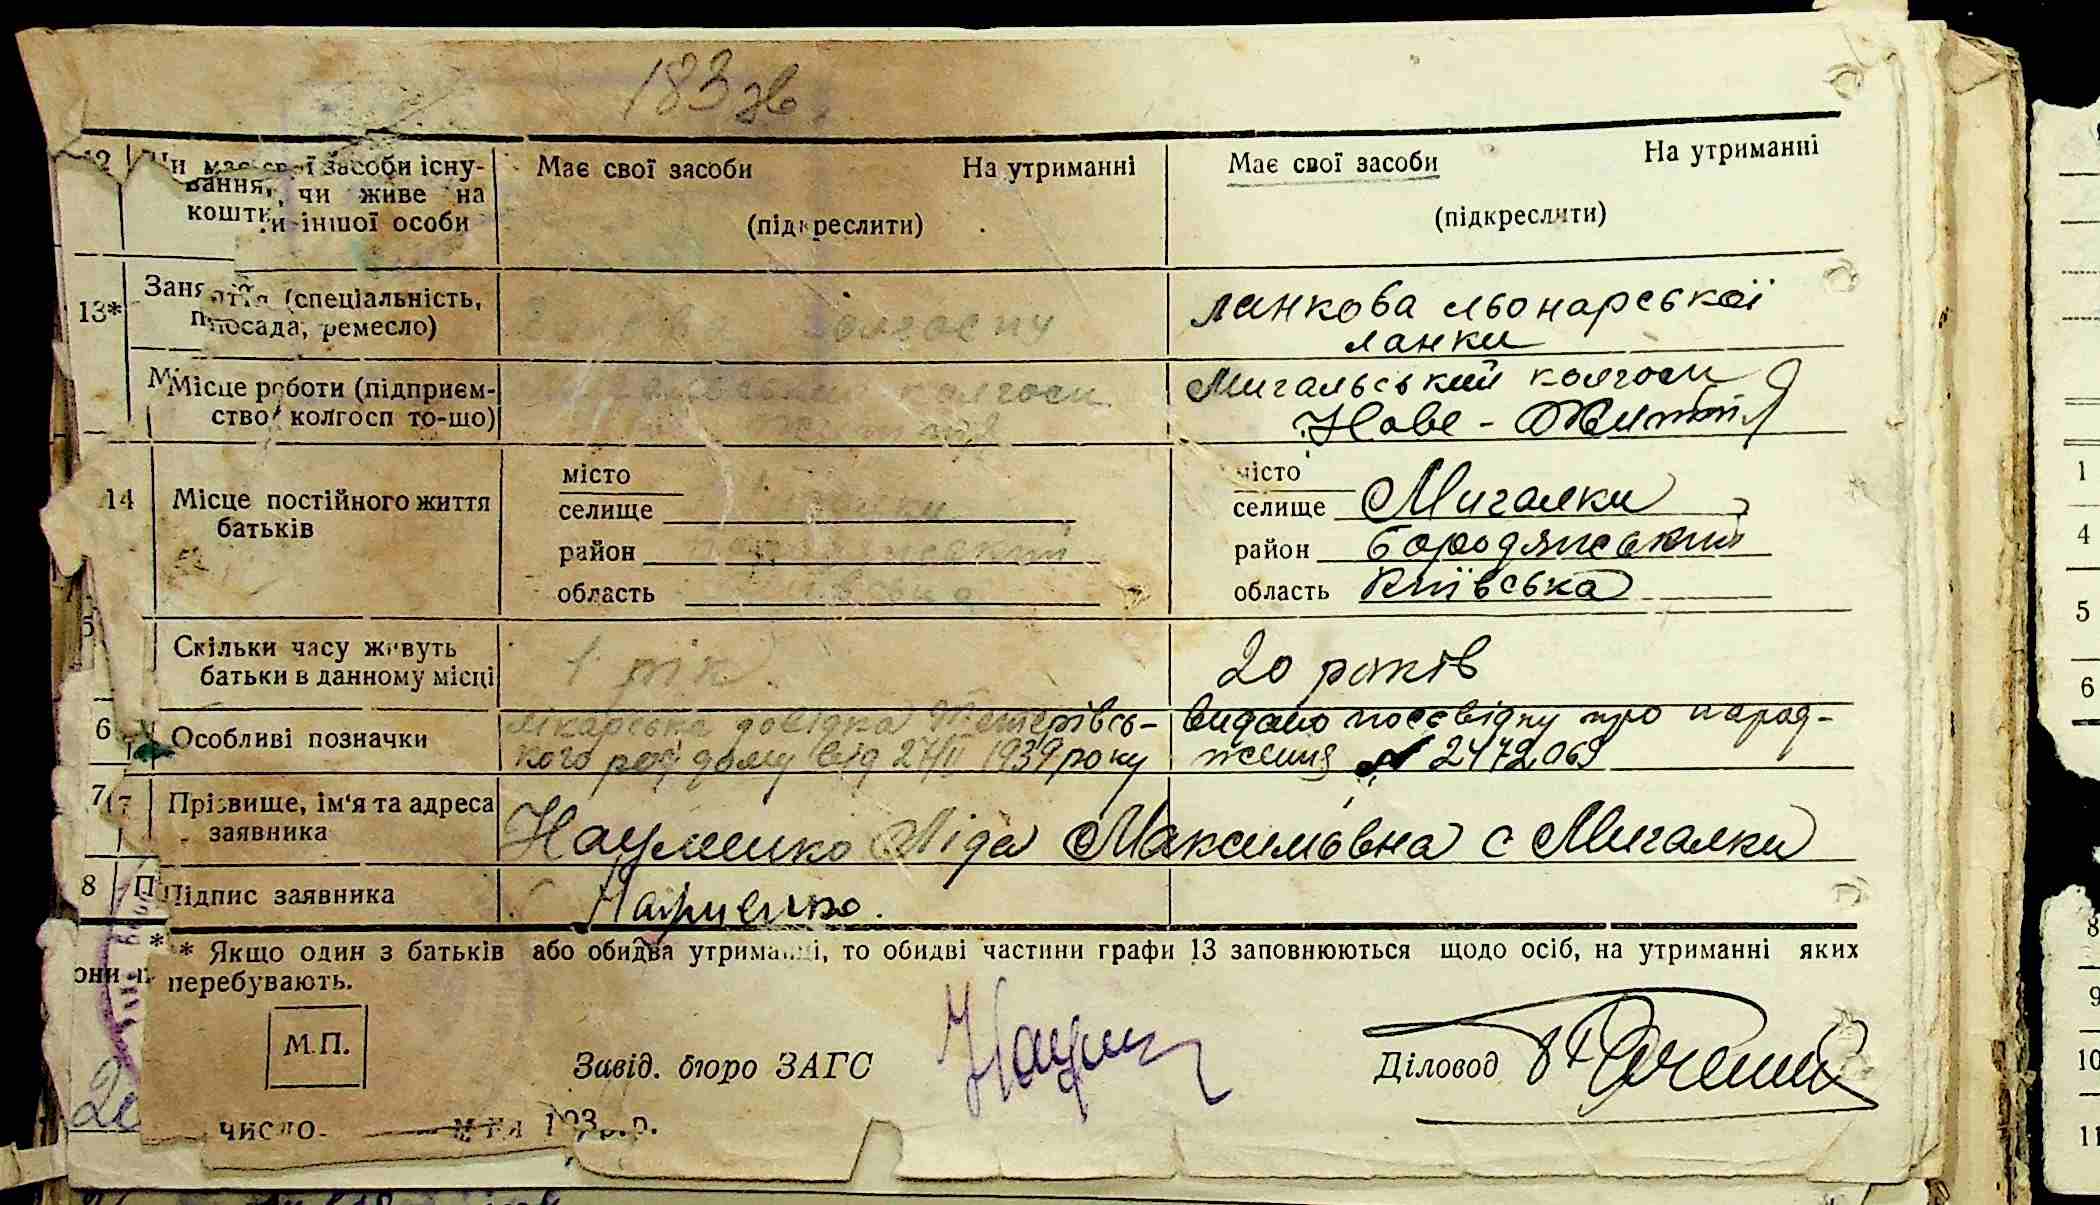 183 зв.
12 Чи має свої засоби існу- Має свої засоби На утриманні Має свої засоби На утриманні
вання, чи живе на (підкреслити) (підкреслити)
кошти іншої особи
13* Заняття (спеціальність, колгоспу ланкова льонарської
посада, ремесло) ланки
Місце роботи (підприєм- колгосп Мигальський колгосп
ство, колгосп то-що) Життя Нове - Життя
14 Місце постійного життя батьків
місто місто
селище селище Мигалки
район район Бородянський
область область Київська
Скільки часу живуть 1 рік. 20 років
батьки в данному місці
6 Особливі позначки лікарська довідка Тетерівсь- видано посвідку про народ-
кого род дому від 27/II 1939 року ження № 2472069
7 Прізвище, ім'я та адреса Науменко Ліда Максимовна с Мигалки
заявника
8 Підпис заявника Науменко.
** Якщо один з батьків або обидва утриманці, то обидві частини графи 13 заповнюються щодо осіб, на утриманні яких
перебувають.
М.П.
Завід. бюро ЗАГС Діловод
число. 193 . р.
1
4
5
6
8
9
10
11